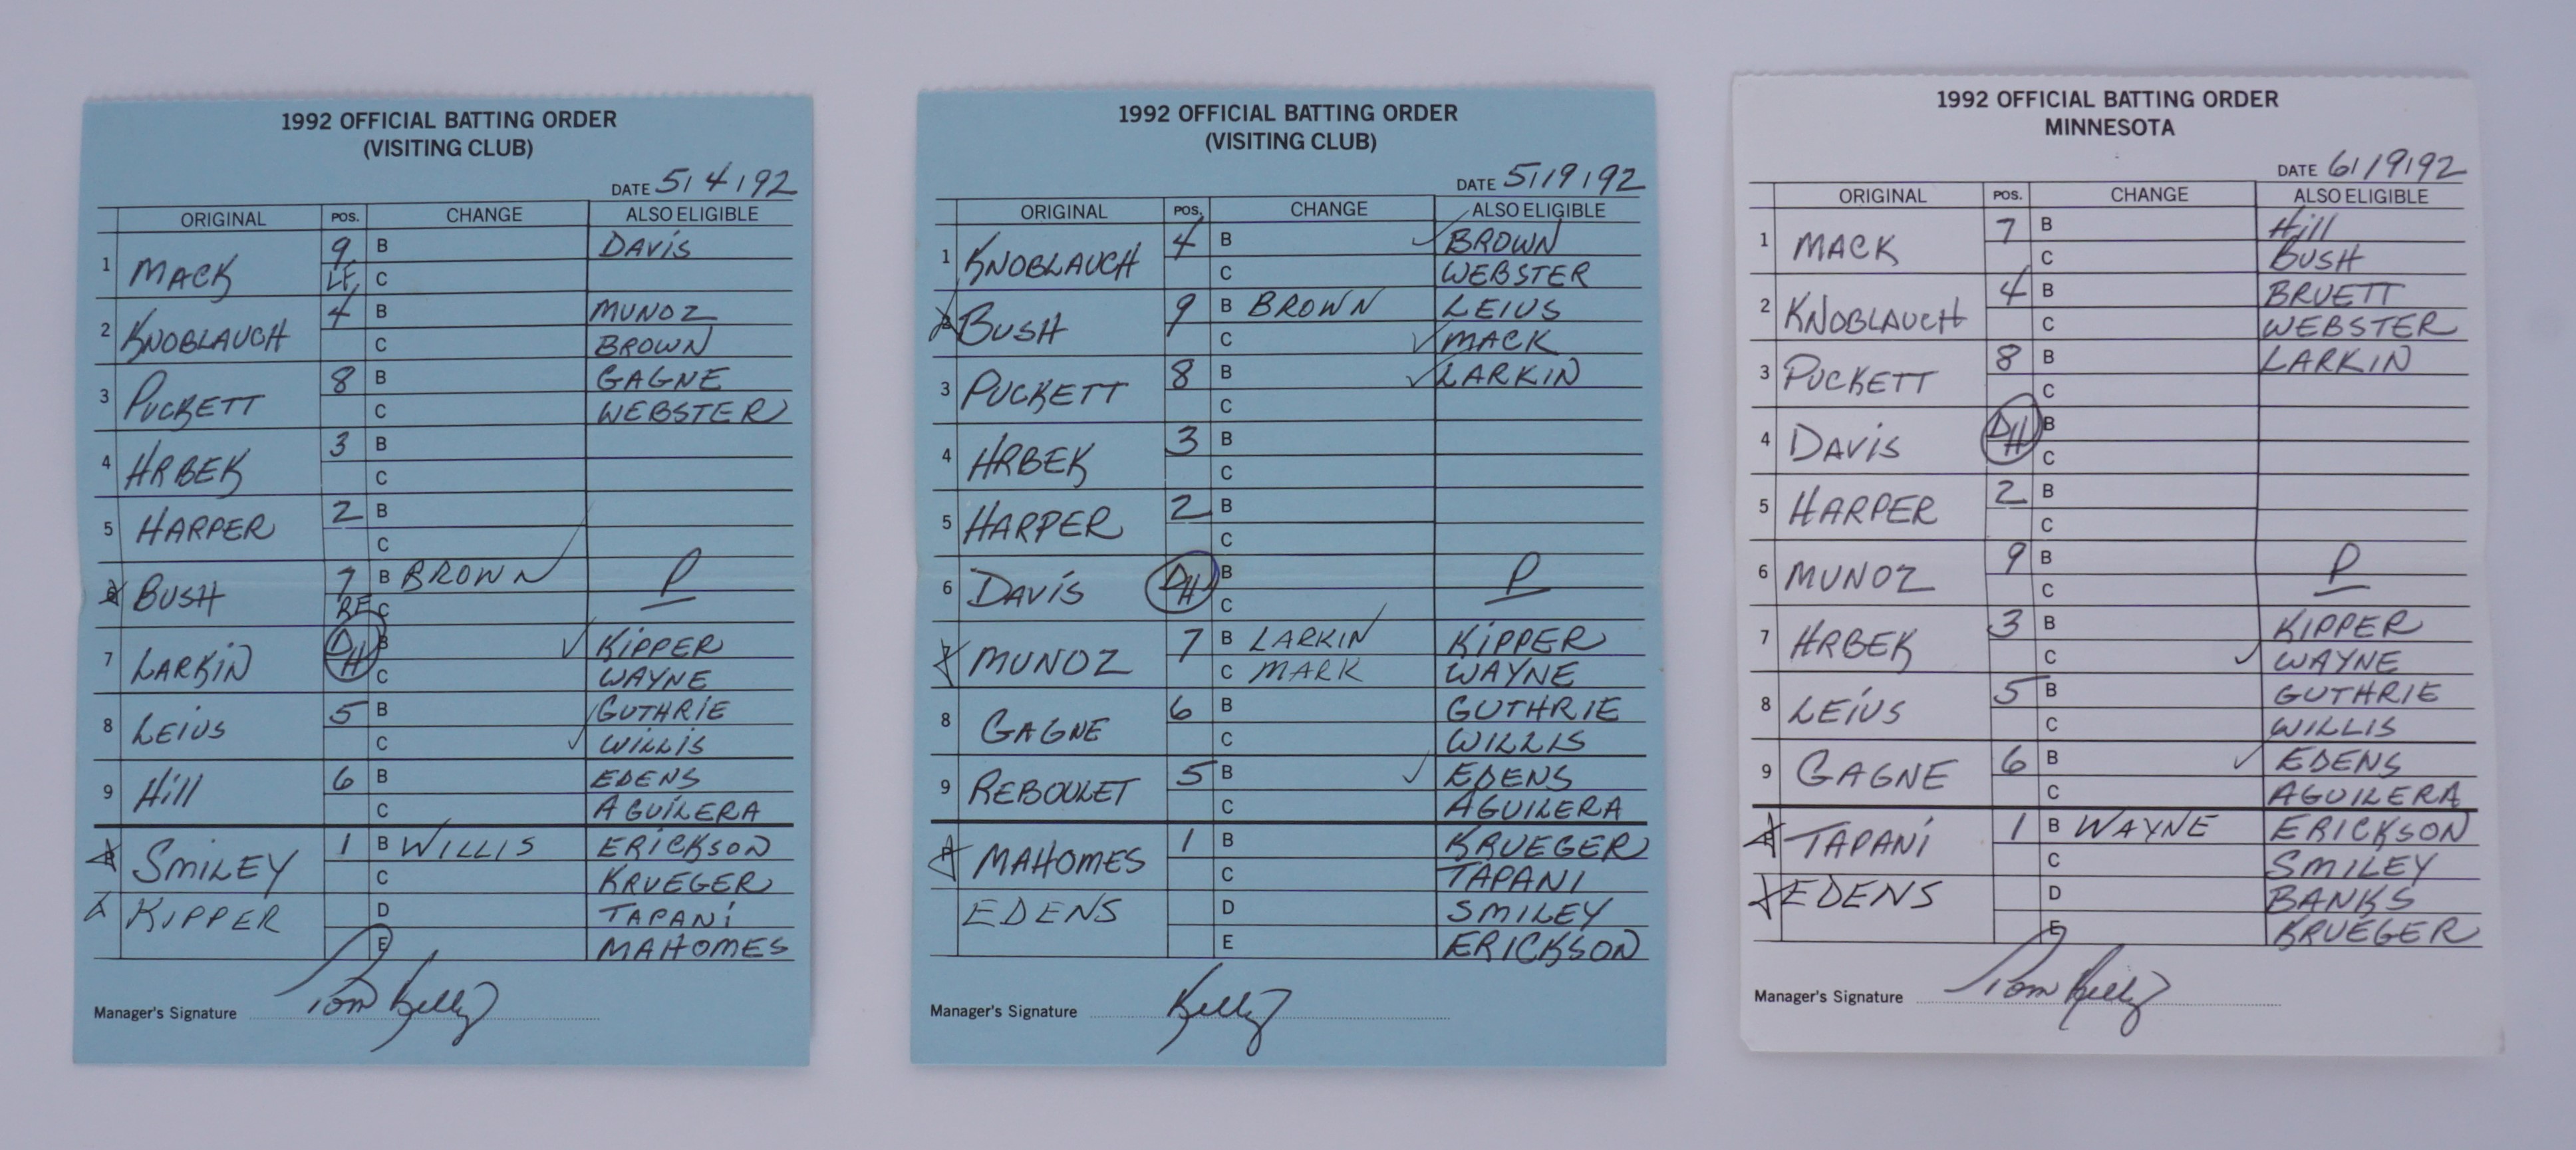 1992 OFFICIAL BATTING ORDER
(VISITING CLUB)
DATE 5/4/92
ORIGINAL POS. CHANGE ALSO ELIGIBLE
1 MACK 9 B DAVIS
LF C
2 KNOBLAUCH 4 B MUNOZ
C BROWN
3 PUCKETT 8 B GAGNE
C WEBSTER
4 HRBEK 3 B
C
5 HARPER 2 B
C
6 BUSH 7 B BROWN P
RF C
7 LARKIN DH B KIPPER
C WAYNE
8 LEIUS 5 B GUTHRIE
C WILLIS
9 Hill 6 B EDENS
C AGUILERA
P SMILEY 1 B WILLIS ERICKSON
C KRUEGER
KIPPER D TAPANI
E MAHOMES
Manager's Signature Tom Kelly
1992 OFFICIAL BATTING ORDER
(VISITING CLUB)
DATE 5/19/92
ORIGINAL POS. CHANGE ALSO ELIGIBLE
1 KNOBLAUCH 4 B BROWN
C WEBSTER
2 BUSH 9 B BROWN LEIUS
C MACK
3 PUCKETT 8 B LARKIN
C
4 HRBEK 3 B
C
5 HARPER 2 B
C
6 DAVIS DH B P
C
7 MUNOZ 7 B LARKIN KIPPER
C MARK WAYNE
8 GAGNE 6 B GUTHRIE
C WILLIS
9 REBOULET 5 B EDENS
C AGUILERA
P MAHOMES 1 B KRUEGER
C TAPANI
EDENS D SMILEY
E ERICKSON
Manager's Signature Kelly
1992 OFFICIAL BATTING ORDER
MINNESOTA
DATE 6/19/92
ORIGINAL POS. CHANGE ALSO ELIGIBLE
1 MACK 7 B Hill
C BUSH
2 KNOBLAUCH 4 B BRUETT
C WEBSTER
3 PUCKETT 8 B LARKIN
C
4 DAVIS DH B
C
5 HARPER 2 B
C
6 MUNOZ 9 B P
C
7 HRBEK 3 B KIPPER
C WAYNE
8 LEIUS 5 B GUTHRIE
C WILLIS
9 GAGNE 6 B EDENS
C AGUILERA
P TAPANI 1 B WAYNE ERICKSON
C SMILEY
EDENS D BANKS
E KRUEGER
Manager's Signature Tom Kelly